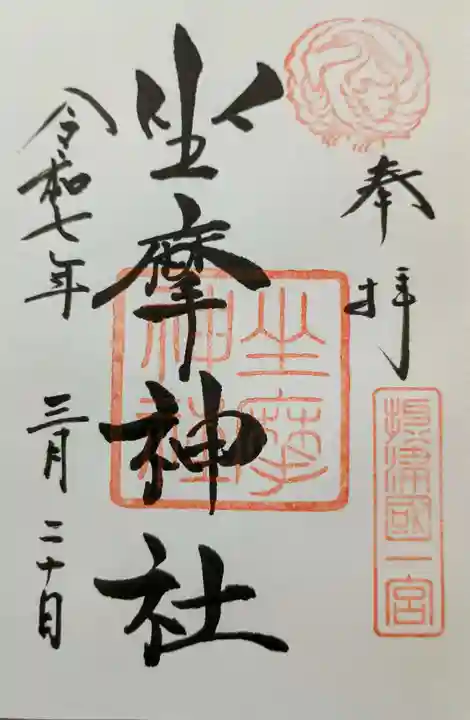 奉拝
摂津國一宮
坐摩神社
坐摩
神社
令和七年
三月二十日